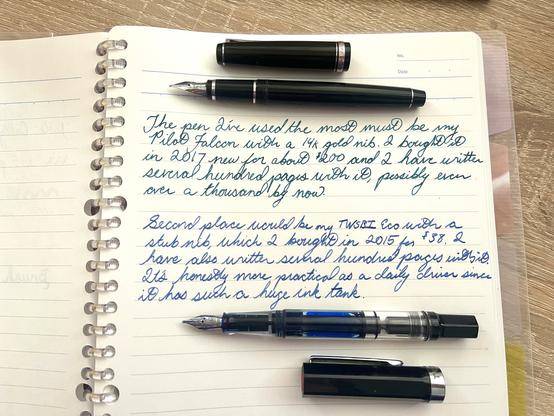 No.
Date
The pen I've used the most must be my
Pilot Falcon with a 14k gold nib. I bought it
in 2017 new for about $200 and I have written
several hundred pages with it, possibly even
over a thousand by now.
Second place would be my TWSBI Eco with a
stub nib, which I bought in 2015 for $38. I
have also written several hundred pages with it.
It's honestly more practical as a daily driver since
it has such a huge ink tank.